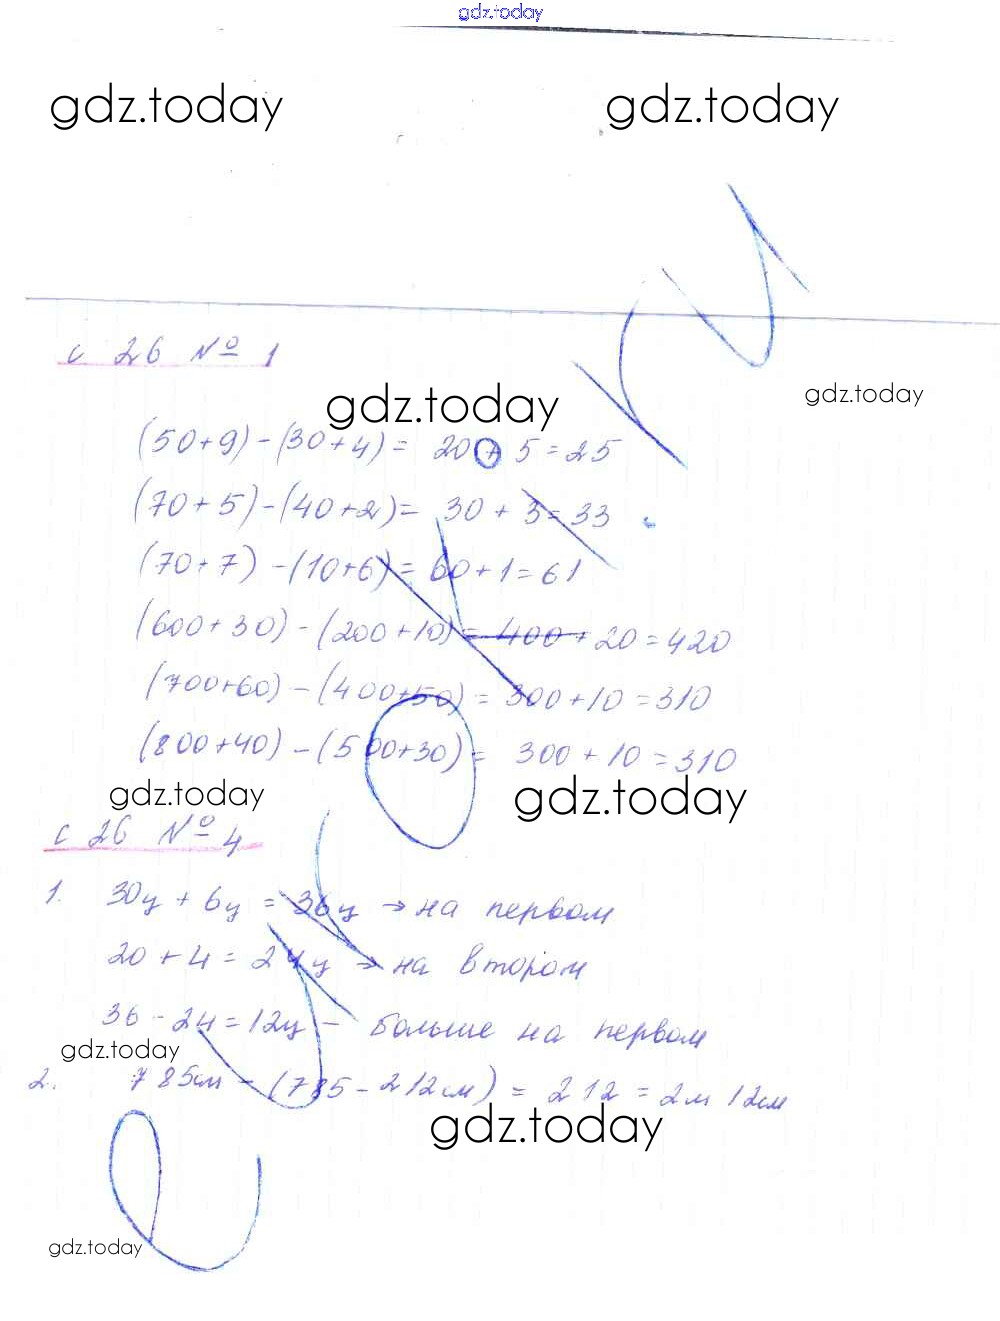 gdz.today
gdz.today gdz.today
с 26 № 1
gdz.today
gdz.today
(50+9)-(30+4)= 20+5=25
(70+5)-(40+2)= 30+3=33
(70+7)-(10+6)=60+1=61
(600+30)-(200+10)=400+20=420
(700+60)-(400+50)=300+10=310
(800+40)-(500+30)= 300+10=310
gdz.today gdz.today
с 26 № 4
1. 30ц+6ц=36ц → на первом
20+4=24ц → на втором
36-24=12ц - больше на первом
gdz.today
2. 785см-(785-212см)=212=2м 12см
gdz.today
gdz.today